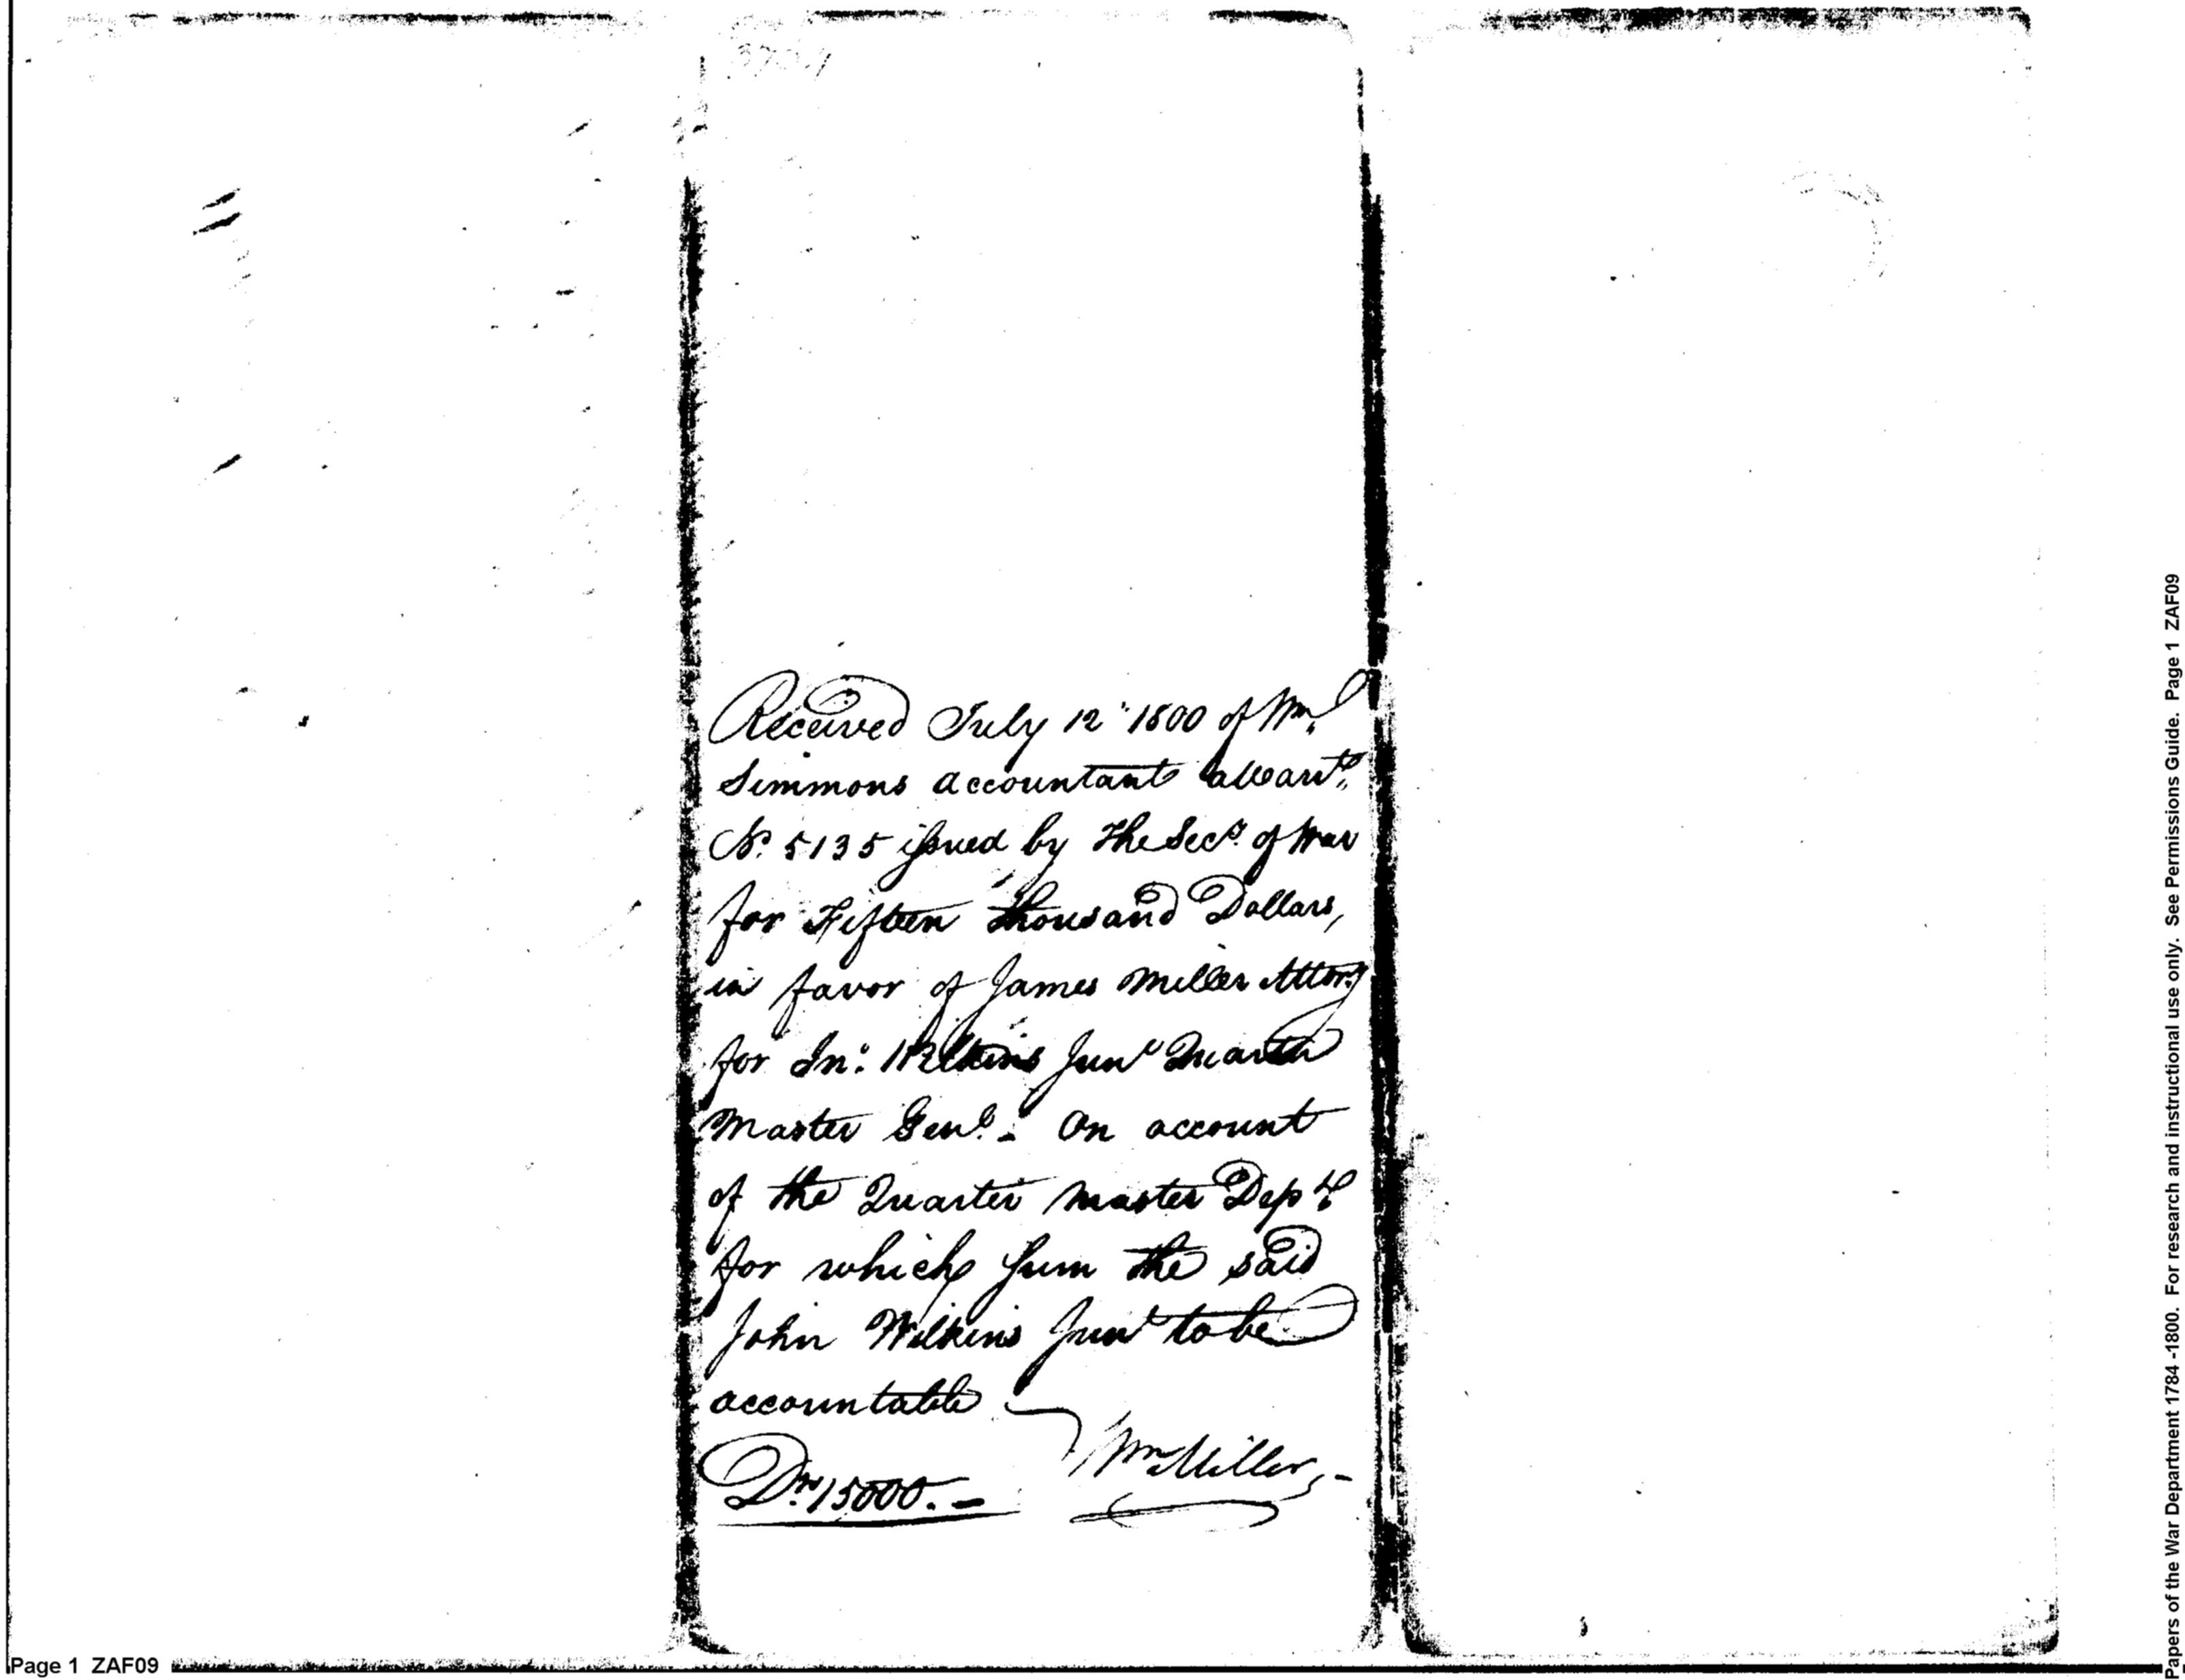 Received July 12th 1800 of Wm.
Simmons accountant a Warrt.
No. 5135 issued by the Secy. of War
for Fifteen thousand Dollars,
in favor of James Miller Attory
for Jno: Wilkins Junr Quarter
Master Genl. - On account
of the Quarter Master Dept.
for which sum the said
John Wilkins Junr to be
accountable
Drs 15000. - Wm Miller, -
Page 1 ZAF09
Papers of the War Department 1784 -1800. For research and instructional use only. See Permissions Guide. Page 1 ZAF09